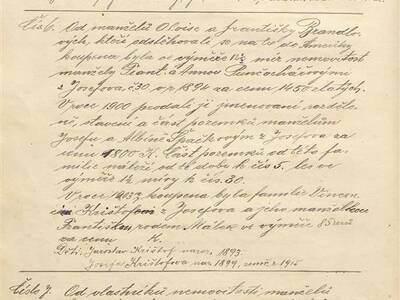 Čís 6. Od manželů Aloise a Františky Brandlo-
vých, kteří odstěhovali se na to do Ameriky
koupena byla ve výměře 12½ měr nemovitost
manžely Frant. a Annou Punčochářovými
z Josefova č.30 v r. 1894 za cenu 1450 zlatých.
V roce 1900 prodali je jmenovaní rozděle-
ně, stavení a část pozemků manželům
Josefu a Albině Špačkovým z Josefova za
cenu 1800 K. Část pozemků od této fa-
milie náleží od té doby k čís 5, les ve
výměře míry k čís. 30.
V roce koupena byla familie Vincen-
cem Krištofem z Josefova a jeho manželkou
Františkou rodem Málek ve výměře 85 arů
za cenu K.
Děti: Jaroslav Krištof naroz. 1893.
Josefa Krištofova nar 1899, zemř. v 1915
Číslo 7. Od vlastníků nemovitosti manželů